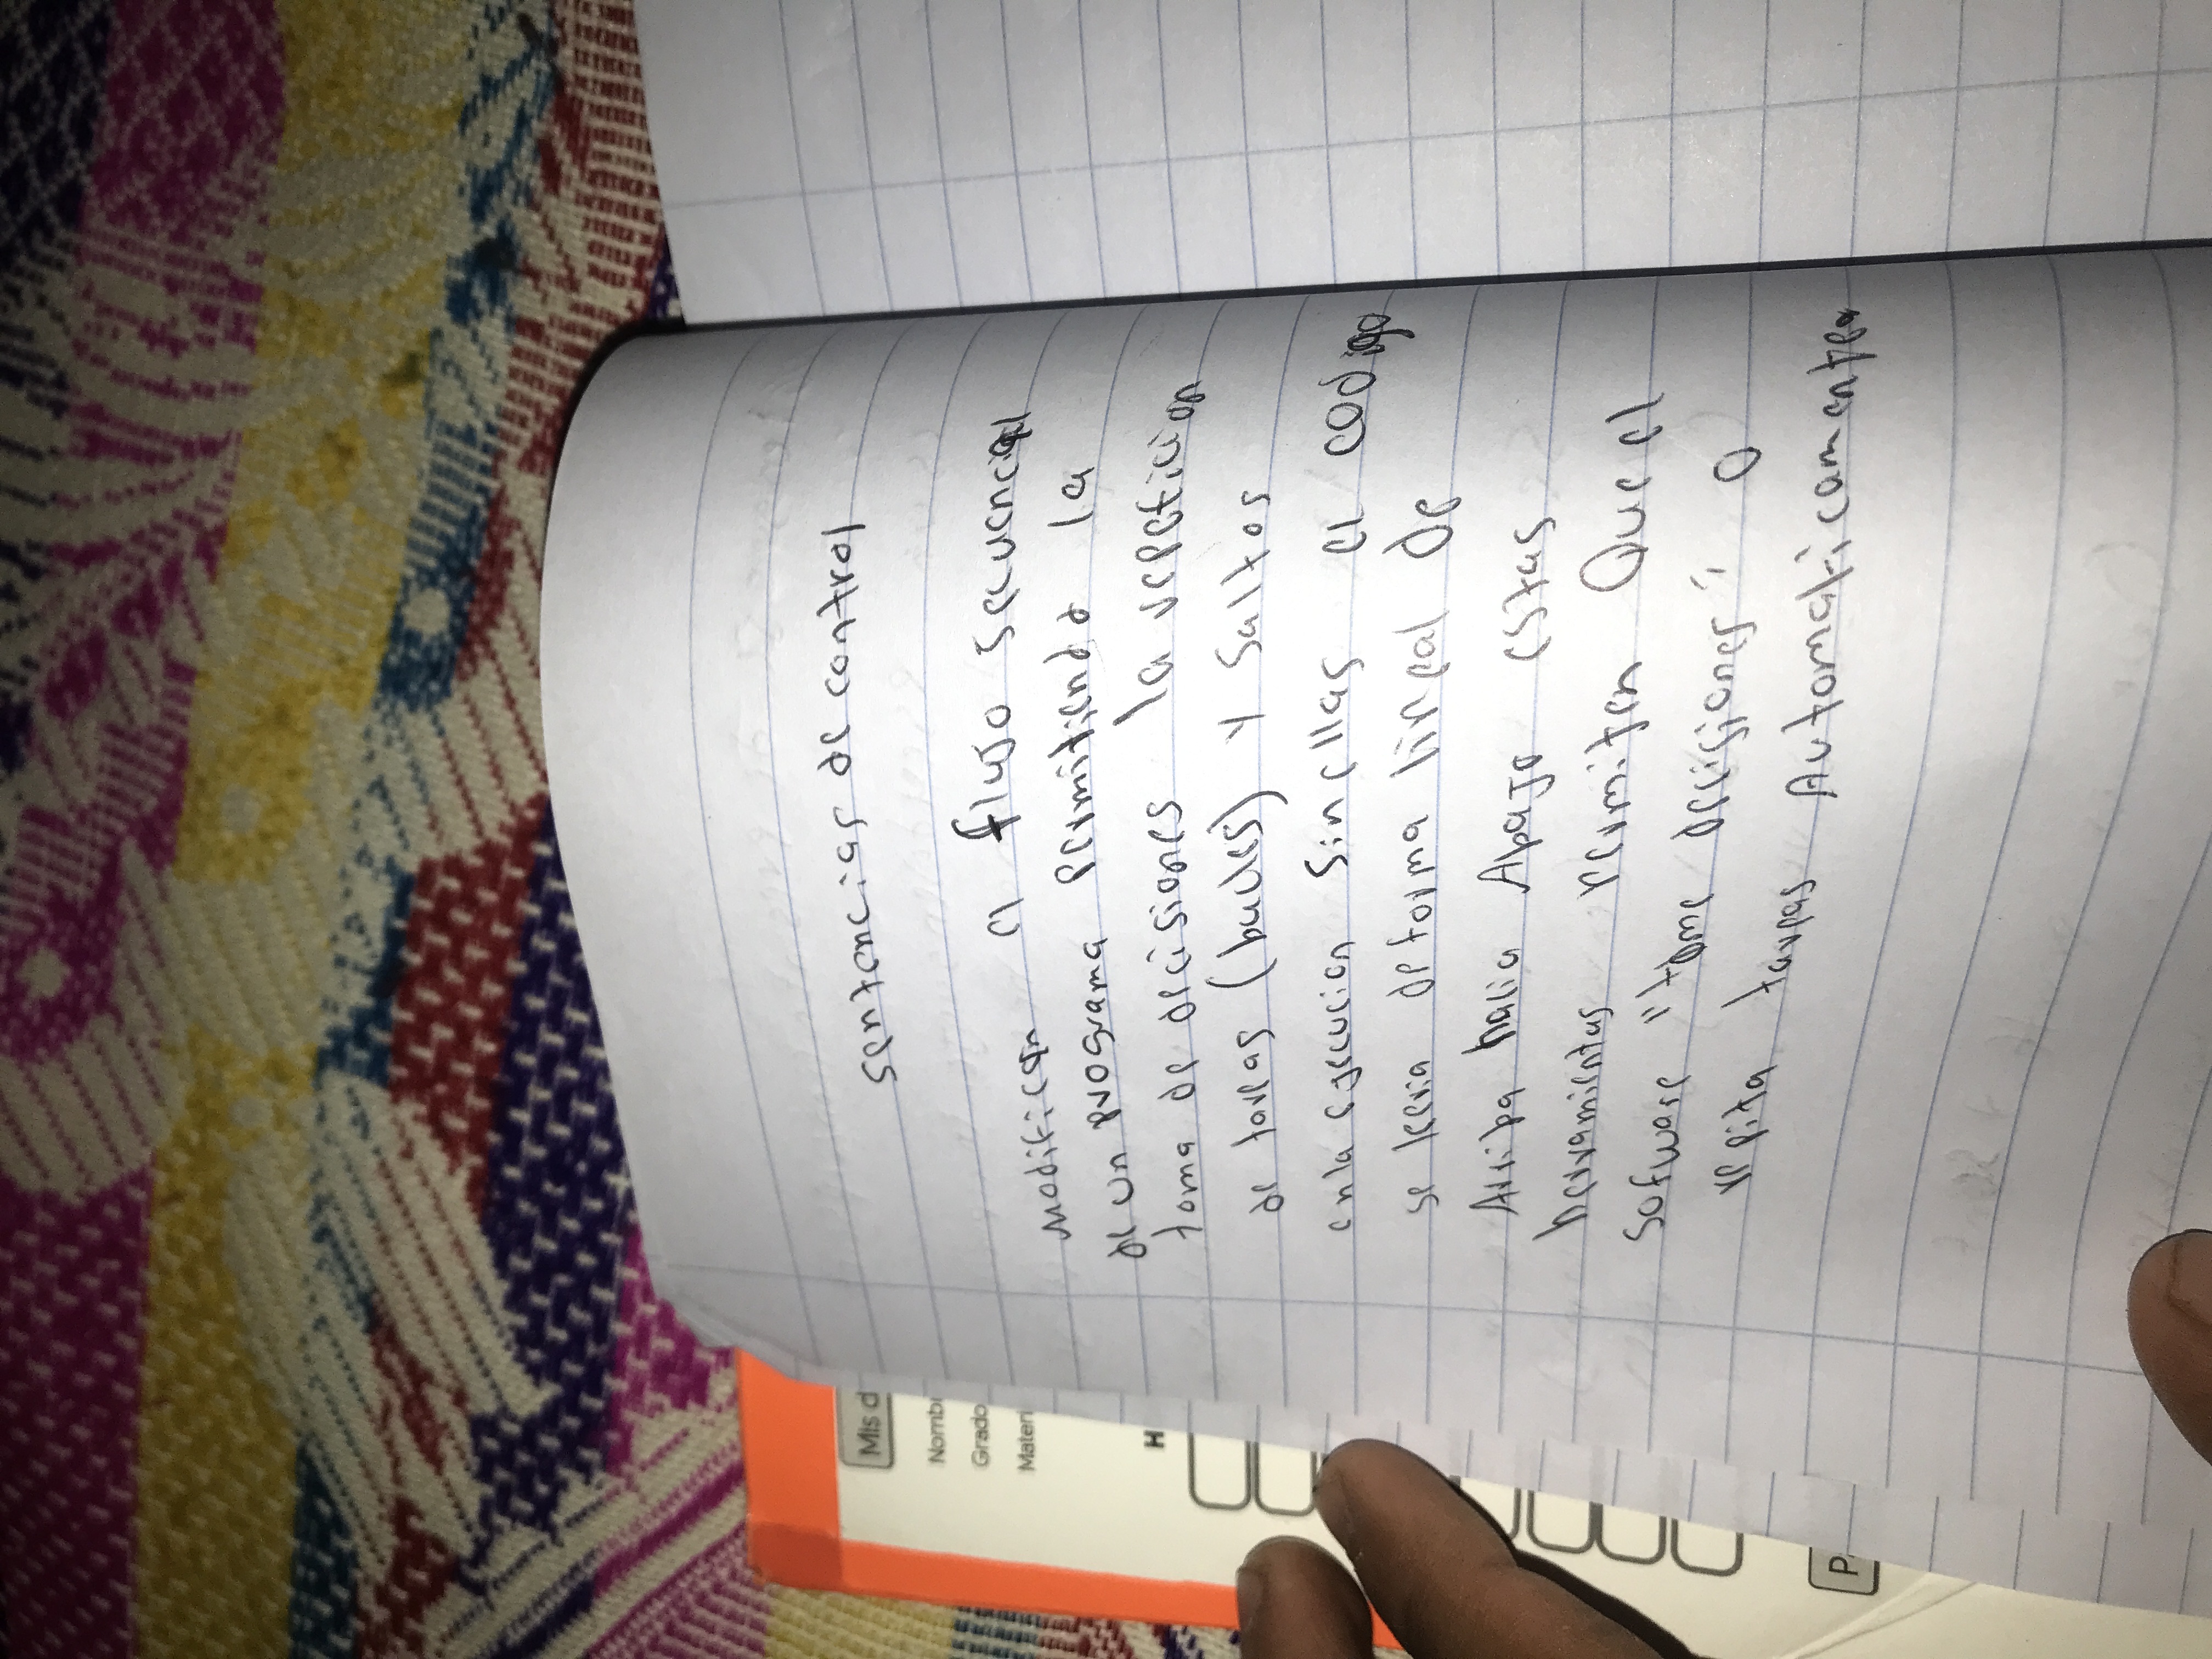 sentencias de control
modifican el flujo secuencial
de un programa permitiendo la
toma de decisiones la repeticion
de tareas (bucles) y saltos
en la ejecucion sin ellas el codigo
se leeria de forma lineal de
Arriba hacia Abajo estas
herramientas permiten Que el
sofware "tome decisiones" o
repita tareas Automaticamente
Mis d
Nomb
Grado
Materi
H
P